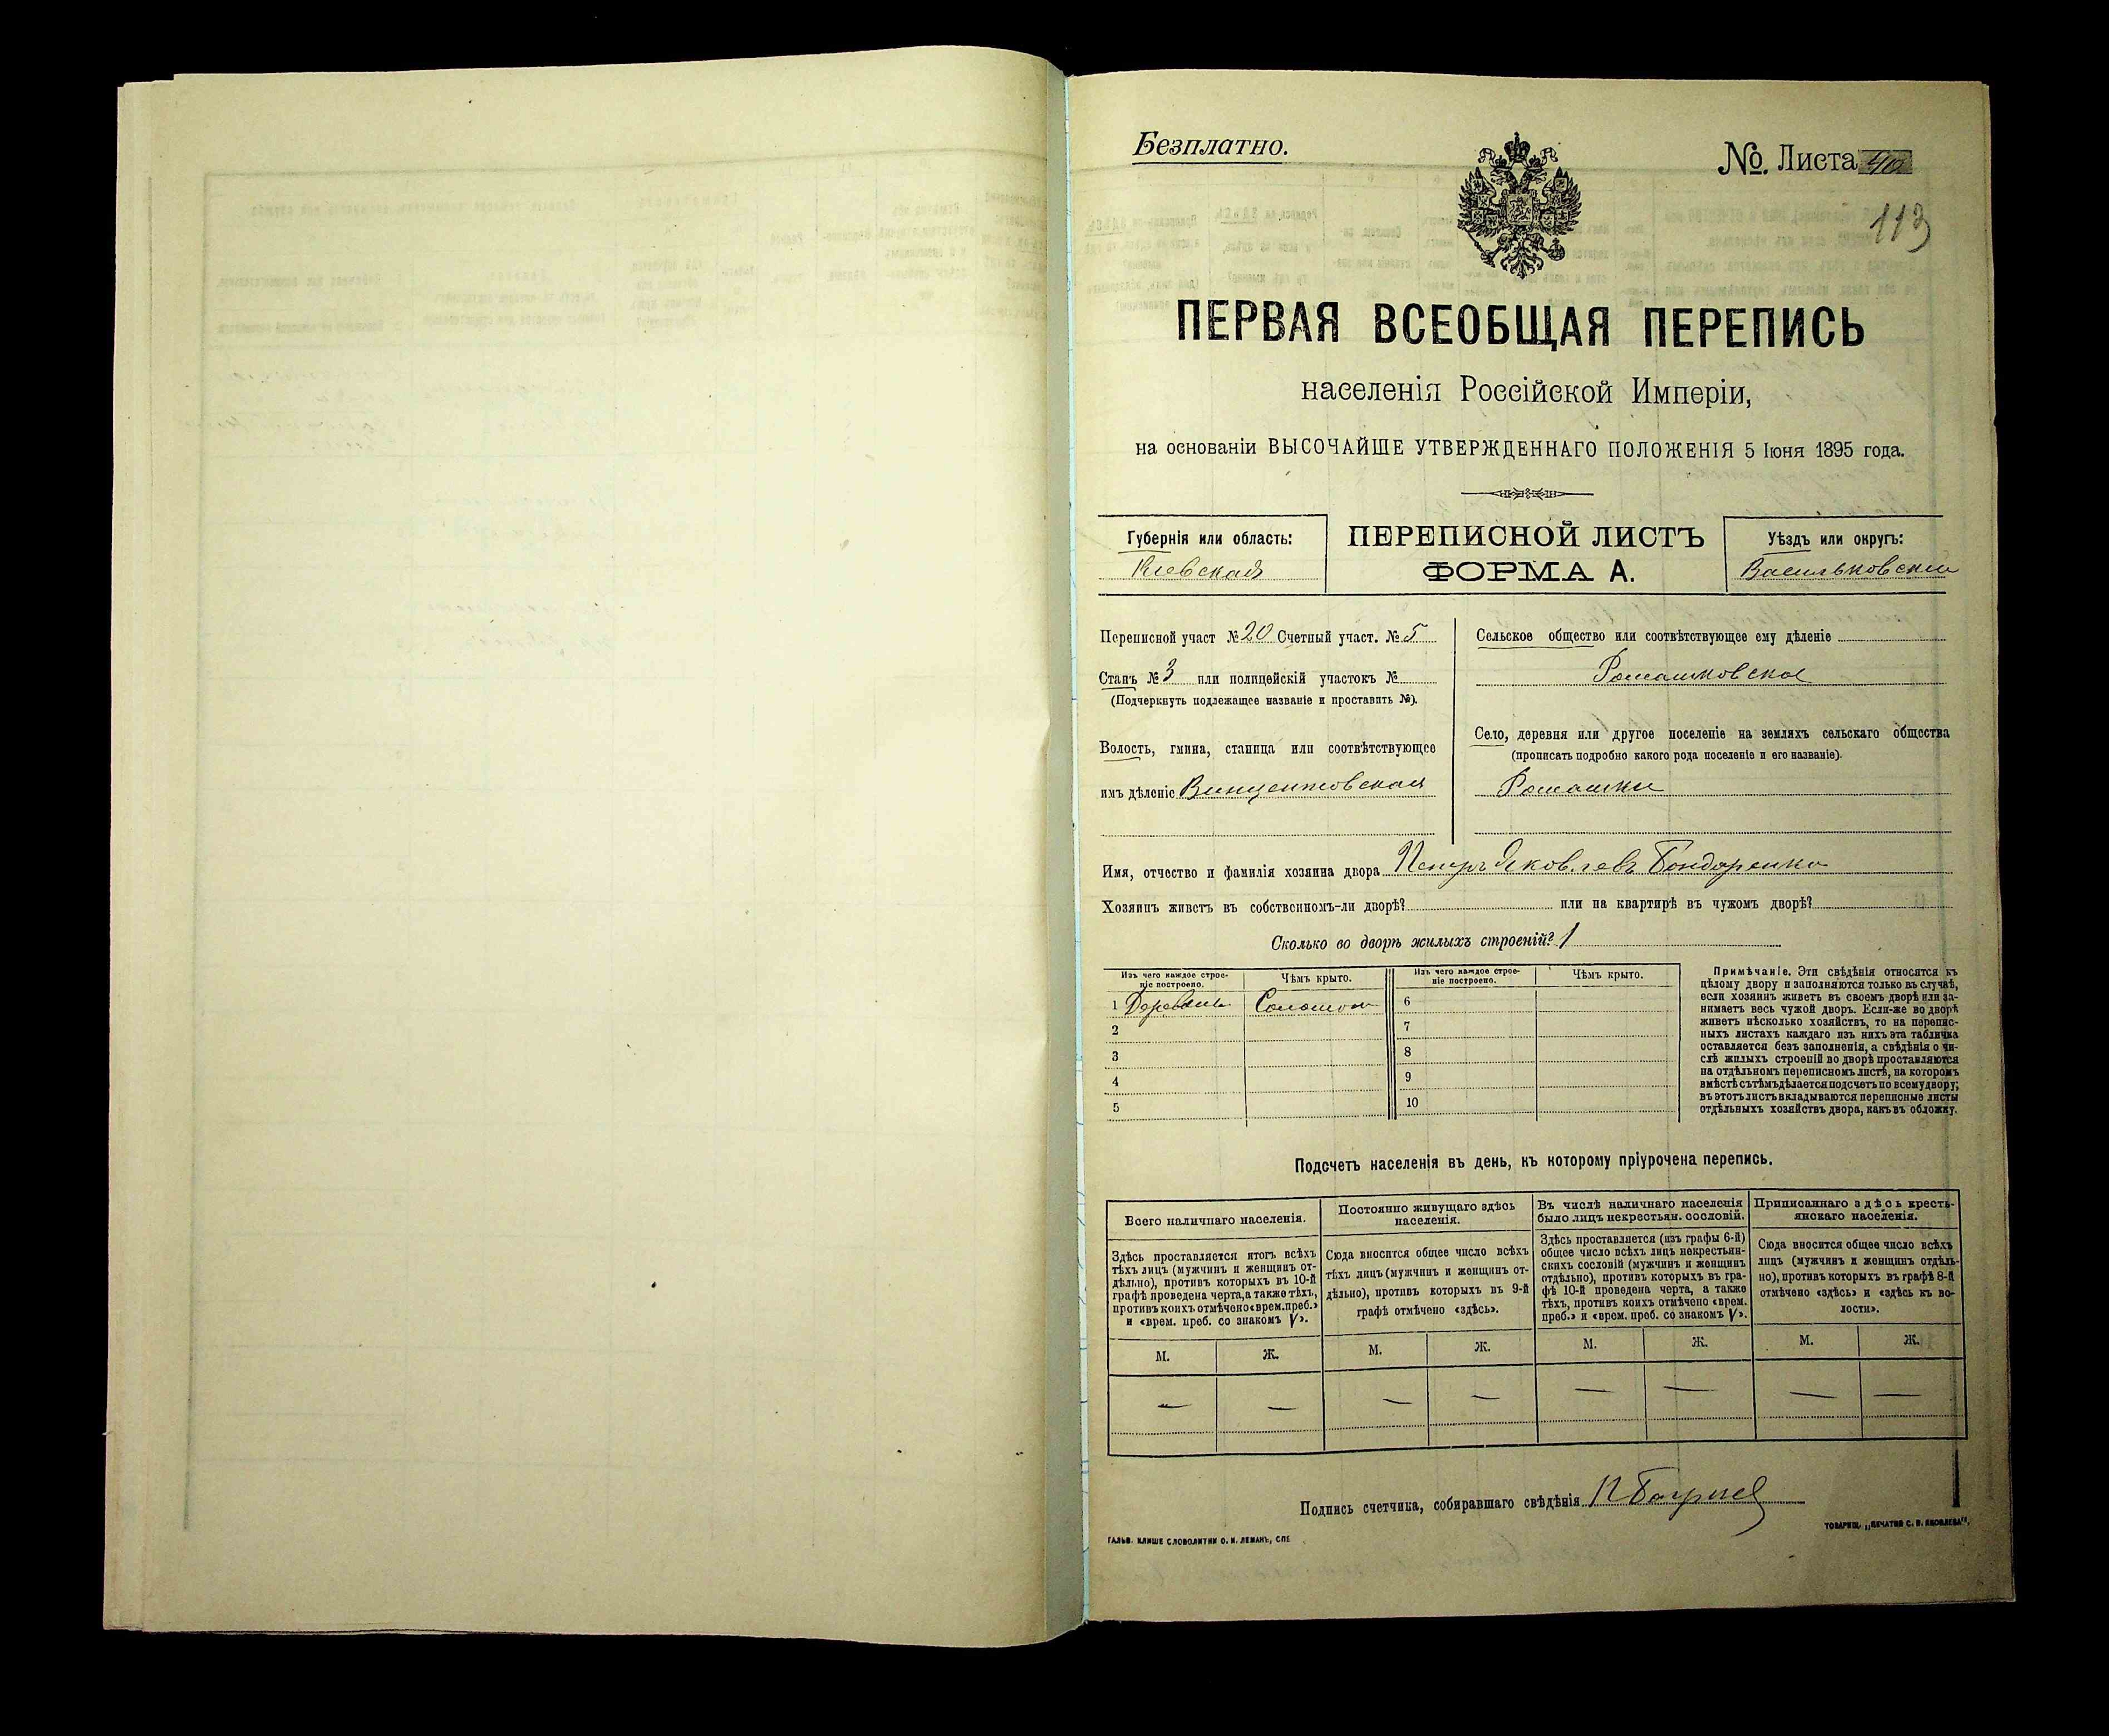 Безплатно.
№. Листа 40
113
ПЕРВАЯ ВСЕОБЩАЯ ПЕРЕПИСЬ
населенія Россійской Имперіи,
на основаніи ВЫСОЧАЙШЕ УТВЕРЖДЕННАГО ПОЛОЖЕНІЯ 5 Іюня 1895 года.
Губернія или область:
Кіевская
ПЕРЕПИСНОЙ ЛИСТЪ
ФОРМА А.
Уѣздъ или округъ:
Васильковскій
Переписной участ №20 Счетный участ. №5
Станъ №3 или полицейскій участокъ №
(Подчеркнуть подлежащее названіе и проставить №).
Волость, гмина, станица или соотвѣтствующее
имъ дѣленіе Винцентовская
Сельское общество или соотвѣтствующее ему дѣленіе
Ромашковское
Село, деревня или другое поселеніе на земляхъ сельскаго общества
(прописать подробно какого рода поселеніе и его названіе).
Ромашки
Имя, отчество и фамилія хозяина двора Петръ Яковлевъ Бондаренко
Хозяинъ живетъ въ собственномъ-ли дворѣ? или на квартирѣ въ чужомъ дворѣ?
Сколько во дворѣ жилыхъ строеній? 1
Изъ чего каждое строе-
ніе построено.
Чѣмъ крыто.
Изъ чего каждое строе-
ніе построено.
Чѣмъ крыто.
1 6
2 7
3 8
4 9
5 10
Примѣчаніе. Эти свѣдѣнія относятся къ
цѣлому двору и заполняются только въ случаѣ,
если хозяинъ живетъ въ своемъ дворѣ или за-
нимаетъ весь чужой дворъ. Если-же во дворѣ
живетъ нѣсколько хозяйствъ, то на перепис-
ныхъ листахъ каждаго изъ нихъ эта табличка
оставляется безъ заполненія, а свѣдѣнія о чи-
слѣ жилыхъ строеній во дворѣ проставляются
на отдѣльномъ переписномъ листѣ, на которомъ
вмѣстѣ съ тѣмъ дѣлается подсчетъ по всему двору;
въ этотъ листъ вкладываются переписные листы
отдѣльныхъ хозяйствъ двора, какъ въ обложку.
Подсчетъ населенія въ день, къ которому пріурочена перепись.
Всего наличнаго населенія.
Здѣсь проставляется итогъ всѣхъ
тѣхъ лицъ (мужчинъ и женщинъ от-
дѣльно), противъ которыхъ въ 10-й
графѣ проведена черта, а также тѣхъ,
противъ коихъ отмѣчено «врем. преб.»
и «врем. преб. со знакомъ V».
М. Ж.
— —
Постоянно живущаго здѣсь
населенія.
Сюда вносится общее число всѣхъ
тѣхъ лицъ (мужчинъ и женщинъ от-
дѣльно), противъ которыхъ въ 9-й
графѣ отмѣчено «здѣсь».
М. Ж.
— —
Въ числѣ наличнаго населенія
было лицъ некрестьян. сословій.
Здѣсь проставляется (изъ графы 6-й)
общее число всѣхъ лицъ некрестьян-
скихъ сословій (мужчинъ и женщинъ
отдѣльно), противъ которыхъ въ гра-
фѣ 10-й проведена черта, а также
тѣхъ, противъ коихъ отмѣчено «врем.
преб.» и «врем. преб. со знакомъ V».
М. Ж.
— —
Приписаннаго здѣсь кресть-
янскаго населенія.
Сюда вносится общее число всѣхъ
лицъ (мужчинъ и женщинъ отдѣль-
но), противъ которыхъ въ графѣ 8-й
отмѣчено «здѣсь» и «здѣсь къ во-
лости».
М. Ж.
— —
Подпись счетчика, собиравшаго свѣдѣнія
ГАЛЬВ. КЛИШЕ СЛОВОЛИТНИ О. И. ЛЕМАНЪ, СПБ
ТОВАРИЩ. „ПЕЧАТНЯ С. П. ЯКОВЛЕВА“.